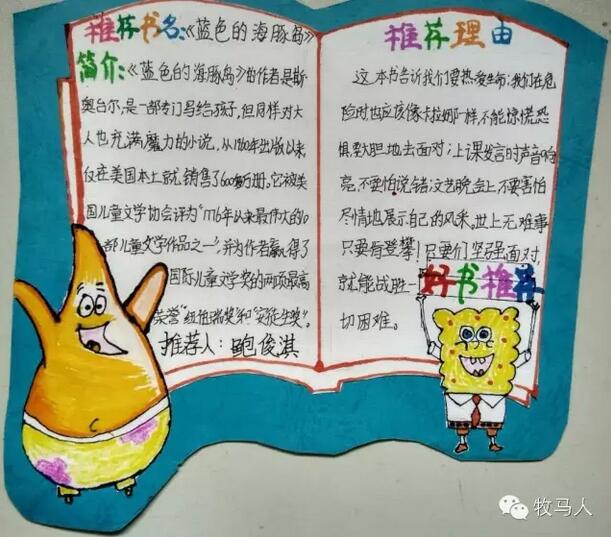 推荐书名:《蓝色的海豚岛》
简介:《蓝色的海豚岛》的作者是斯
奥台尔,是一部专门写给孩子,但同样对大
人也充满魔力的小说。从1960年出版以来
仅在美国本土就销售了600多万册。它被美
国儿童文学协会评为"1776年以来最伟大的10
部儿童文学作品之一",并为作者赢得了
国际儿童文学奖的两项最高
荣誉"纽伯瑞奖"和"安徒生奖"。
推荐人:鲍俊淇
推荐理由
这本书告诉我们要热爱生命;我们在危
险时也应该像卡拉娜一样,不能惊慌恐
惧要大胆地去面对;上课发言时声音响
亮,不要怕说错;文艺晚会上,不要害怕
尽情地展示自己的风采。世上无难事
只要肯登攀!只要们坚强面对,
就能战胜一
切困难。
好书推荐
牧马人